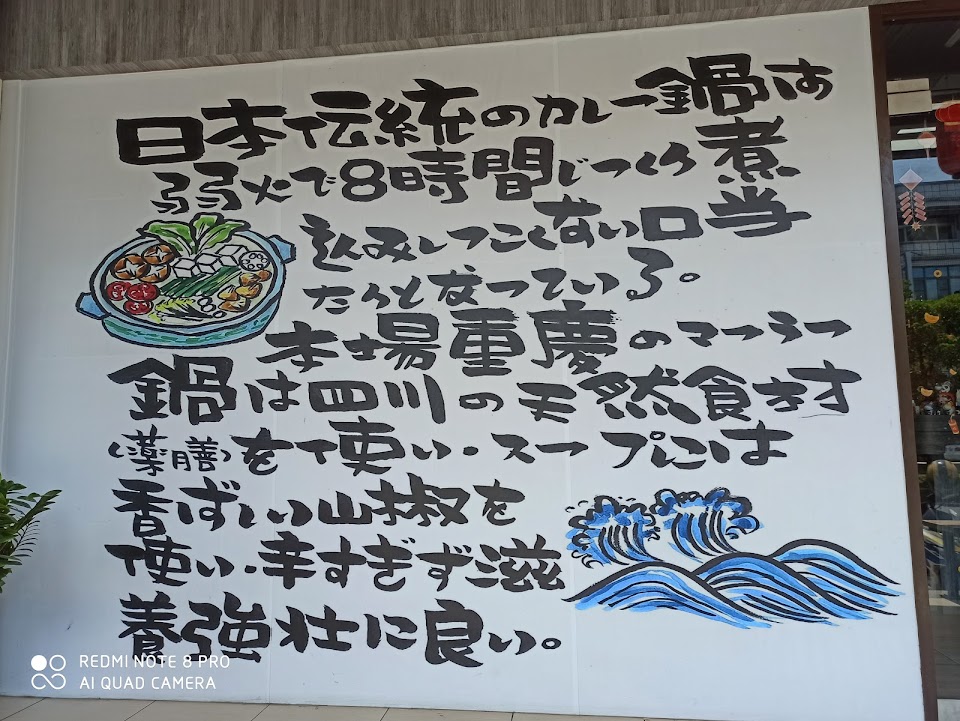 日本伝統のカレー鍋は
弱火で8時間じっくり煮
込みしつこくない口当
たりとなっている。
本場重慶のマーラー
鍋は四川の天然食材
(薬膳)を使い・スープには
香ばしい山椒を
使い・辛すぎず滋
養強壮に良い。
REDMI NOTE 8 PRO
AI QUAD CAMERA